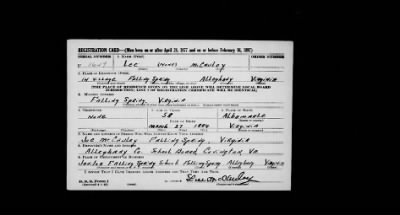 REGISTRATION CARD—(Men born on or after April 28, 1877 and on or before February 16, 1897)
SERIAL NUMBER 1. NAME (Print) ORDER NUMBER
U 1609 Lee (none) McCauley
2. PLACE OF RESIDENCE (Print)
In village Falling Spring Alleghany Virginia
[THE PLACE OF RESIDENCE GIVEN ON THE LINE ABOVE WILL DETERMINE LOCAL BOARD
JURISDICTION; LINE 2 OF REGISTRATION CERTIFICATE WILL BE IDENTICAL]
3. MAILING ADDRESS
Falling Spring, Virginia
4. TELEPHONE
None 58 Albemarle
March 1884 Virginia
7. NAME AND ADDRESS OF PERSON WHO WILL ALWAYS KNOW YOUR ADDRESS
McCauley Falling Spring, Virginia
8. EMPLOYER'S NAME AND ADDRESS
Alleghany Co. School Board Covington Va
9. PLACE OF EMPLOYMENT OR BUSINESS
Falling Spring School Falling Spring Alleghany Virginia
I AFFIRM THAT I HAVE VERIFIED ABOVE ANSWERS AND THAT THEY ARE TRUE.
D. S. S. Form 1
Lee McCauley